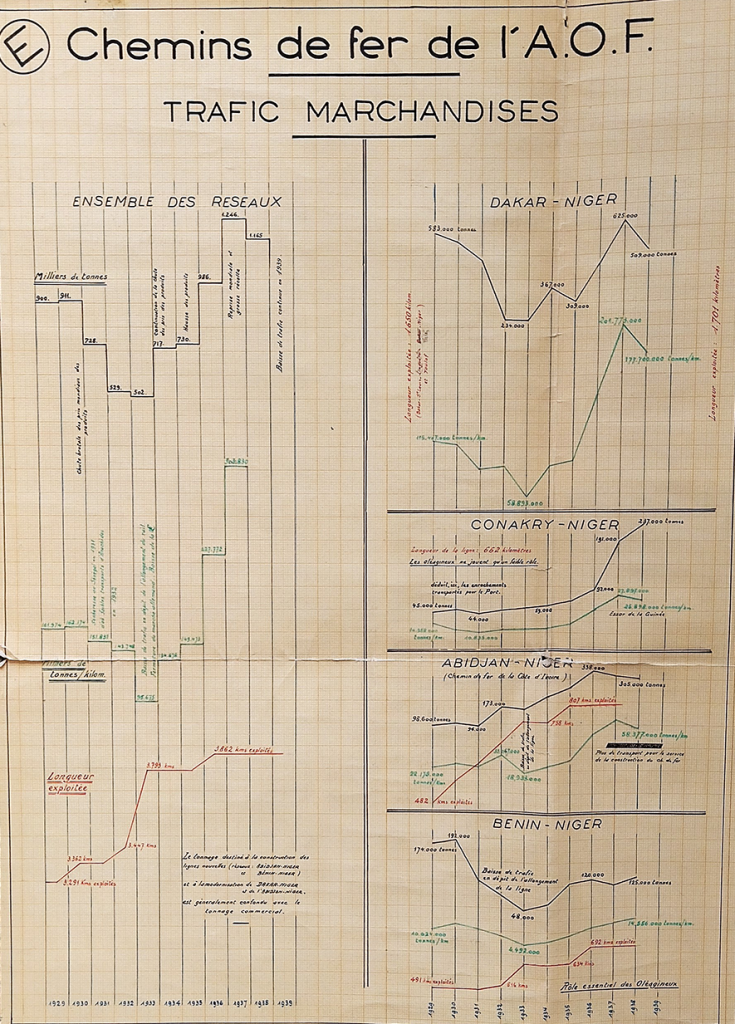 E
Chemins de fer de l'A.O.F.
TRAFIC MARCHANDISES
ENSEMBLE DES RESEAUX
Milliers de tonnes
900.
911.
728.
529.
502.
717.
730.
926.
1.246.
1.165
Chute brutale des prix mondiaux des produits
Continuation de la chute des prix des produits
Hausse des produits
Reprise mondiale et grosse récolte
Baisse de trafic continue en 1939.
Milliers de
tonnes/kilom.
Longueur
exploitée
3.291 kms exploités
3.362 kms
3.447 kms
3.799 kms
3.862 kms exploités
Le tonnage destiné à la construction des
lignes nouvelles (réseaux ABIDJAN-NIGER
et BENIN-NIGER)
et à la modernisation du DAKAR-NIGER
et de l'ABIDJAN-NIGER,
est généralement confondu avec le
tonnage commercial.
1929 1930 1931 1932 1933 1934 1935 1936 1937 1938 1939
DAKAR-NIGER
553.000 tonnes
234.000
367.000
309.000
625.000
509.000 tonnes
Longueur exploitée: 1.650 kilom.
Longueur exploitée: 1.701 kilomètres
177.700.000 tonnes/km.
58.893.000
CONAKRY-NIGER
Longueur de la ligne: 662 kilomètres
Les oléagineux ne jouent qu'un faible rôle.
déduit, ici, les enrochements
transportés pour le Port.
45.000 tonnes
44.000
59.000
92.000
191.000
237.000 tonnes
Essor de la Guinée
ABIDJAN-NIGER
(Chemin de fer de la Côte d'Ivoire)
98.600 tonnes
173.000
338.000
305.000 tonnes
807 kms exploités
738 kms
482 kms exploités
18.938.000
58.377.000
tonnes/km
Plus de transport pour le service
de la construction du ch. de fer
BENIN-NIGER
174.000 tonnes
192.000
Baisse de trafic
en dépit de l'allongement
de la ligne
48.000
120.000
125.000 tonnes
tonnes/km
4.492.000
14.586.000 tonnes/km
491 kms exploités
516 kms
634 kms
692 kms exploités
Rôle essentiel des Oléagineux
1929 1930 1931 1932 1933 1934 1935 1936 1937 1938 1939